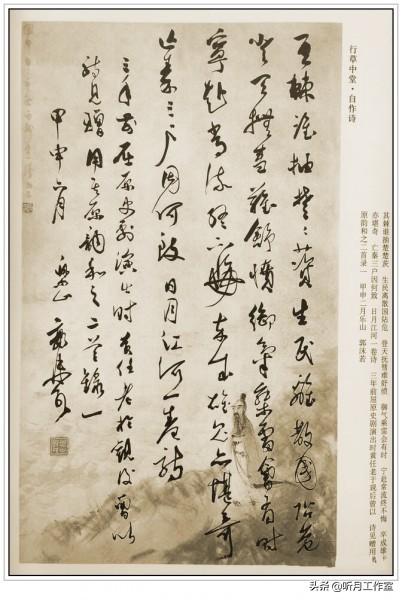 行草中堂·自作诗
其棘谁抽楚楚茨 生民离散国阽危 登天抚彗难舒愤 御气乘雷会有时 宁赴常流终不悔 卒成雄
亦堪奇 亡秦三户因何致 日月江河一卷诗 三年前屈原史剧演出时黄任老于观后曾以 诗见赠用其
原韵和之二首录一 甲申二月乐山 郭沫若
其棘谁抽楚楚茨生民離散國阽危
登天撫彗難舒憤御氣乘雷會有時
寧赴常流終不悔卒成雄鬼亦堪奇
亡秦三户因何致日月江河一卷詩
三年前屈原史劇演出時黄任老於觀後曾以
詩見贈用其原韻和之二首錄一
甲申六月 樂山 郭沫若
头条 @听月工作室